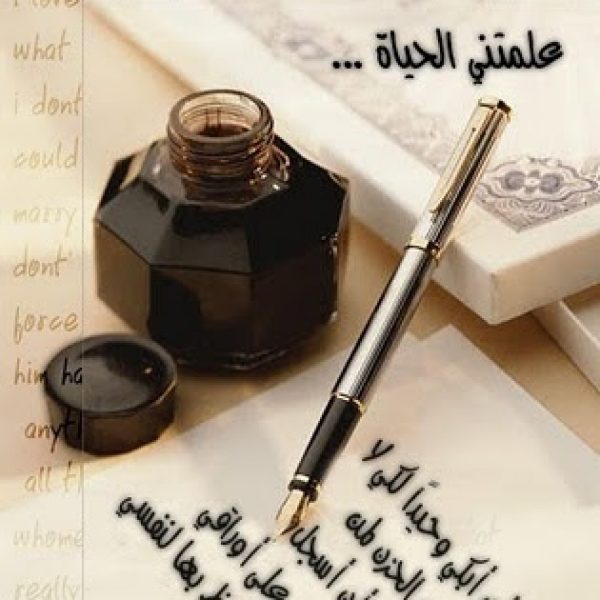 علمتني الحياة ...
i love
what
i dont
could
marry
dont'
force
him
all
whome
really
أبكي وحيداً لكي لا
الحزن
أن أسجل
على أوراقي
بها لنفسي